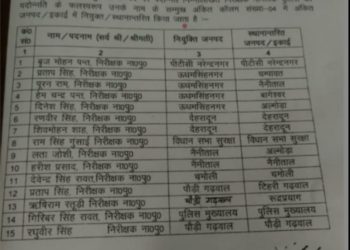 पदोन्नति के फलस्वरूप उनके नाम के सम्मुख अंकित कॉलम संख्या-04 में अंकित
जनपद/इकाई में नियुक्त/स्थानान्तरित किया जाता है :-
क्र0 सं0 नाम/पदनाम (सर्व श्री/श्रीमती) नियुक्ति जनपद स्थानान्तरित जनपद/इकाई
1 2 3 4
1 बृज मोहन पन्त, निरीक्षक ना0पु0 पीटीसी नरेन्द्रनगर पीटीसी नरेन्द्रनगर
2 प्रताप सिंह, निरीक्षक ना0पु0 ऊधमसिंहनगर चम्पावत
3 पूरन राम, निरीक्षक ना0पु0 ऊधमसिंहनगर नैनीताल
4 हेम चन्द्र पन्त, निरीक्षक ना0पु0 ऊधमसिंहनगर बागेश्वर
5 दिनेश सिंह, निरीक्षक ना0पु0 ऊधमसिंहनगर अल्मोड़ा
6 रणवीर सिंह, निरीक्षक ना0पु0 देहरादून देहरादून
7 शिवमोहन शाह, निरीक्षक ना0पु0 देहरादून देहरादून
8 राम सिंह गुसाईं निरीक्षक ना0पु0 विधान सभा सुरक्षा विधान सभा सुरक्षा
9 लता जोशी, निरीक्षक ना0पु0 नैनीताल नैनीताल
10 हरीश प्रसाद, निरीक्षक ना0पु0 नैनीताल अल्मोड़ा
11 देवेन्द्र सिंह रावत, निरीक्षक ना0पु0 चमोली चमोली
12 प्रताप सिंह, निरीक्षक ना0पु0 पौड़ी गढ़वाल टिहरी गढ़वाल
13 ऋषिराम रतूड़ी निरीक्षक ना0पु0 पौड़ी गढ़वाल रूद्रप्रयाग
14 गिरिबर सिंह रावत, निरीक्षक ना0पु0 पुलिस मुख्यालय पुलिस मुख्यालय
15 रघुवीर सिंह निरीक्षक ना0पु0 पौड़ी गढ़वाल पौड़ी गढ़वाल